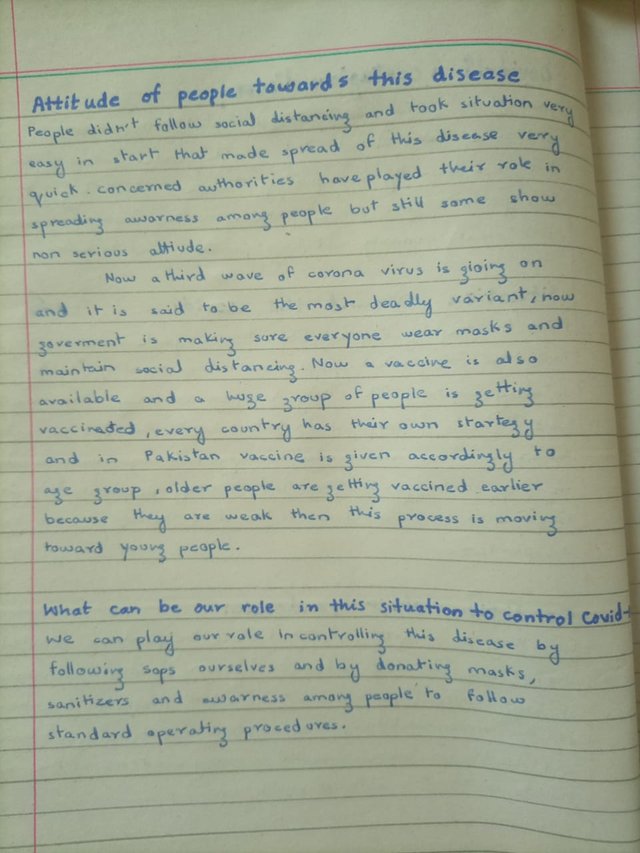 Attitude of people towards this disease
People didn't follow social distancing and took situation very
easy in start that made spread of this disease very
quick. concerned authorities have played their role in
spreading awarness among people but still some show
non serious attiude.
Now a third wave of corona virus is gioing on
and it is said to be the most deadly variant, now
goverment is making sure everyone wear masks and
maintain social distancing. Now a vaccine is also
available and a huge group of people is getting
vaccinated, every country has their own startegy
and in Pakistan vaccine is given accordingly to
age group, older people are getting vaccined earlier
because they are weak then this process is moving
toward young people.
What can be our role in this situation to control Covid-
We can play our role in controlling this disease by
following sops ourselves and by donating masks,
sanitizers and awarness among people to follow
standard operating procedures.